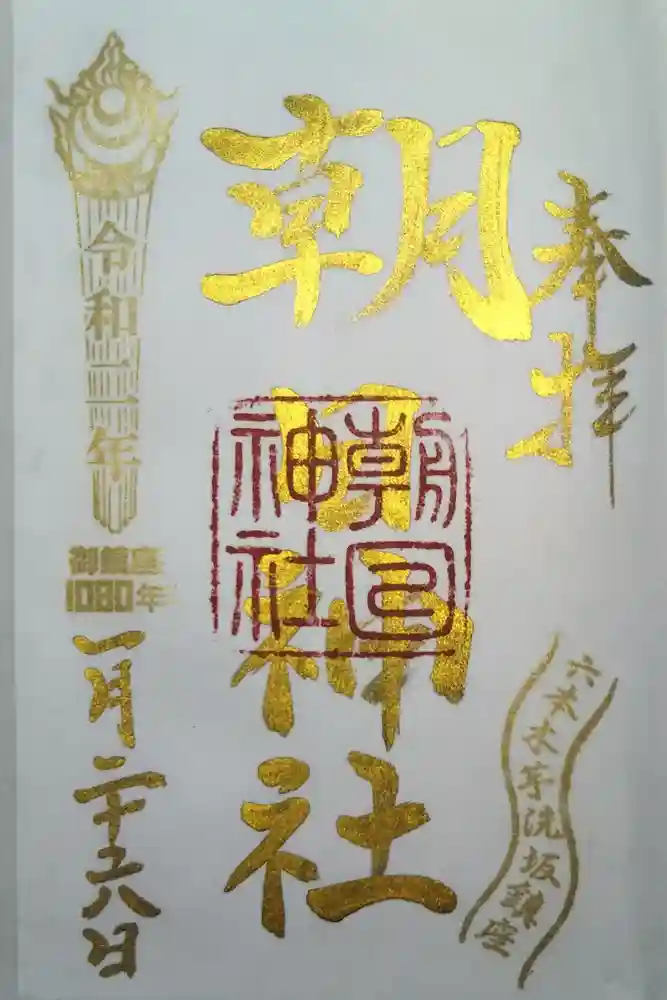 奉拝
六本木芋洗坂鎮座
朝日神社
朝日神社
令和二年
御鎮座
1080年
一月二十六日